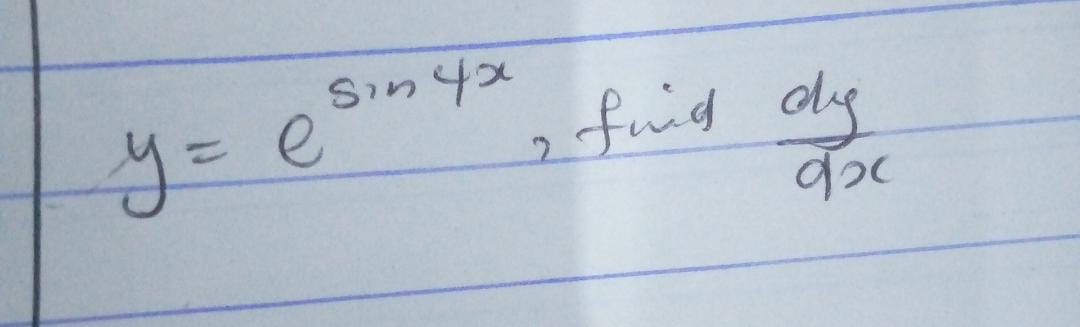 y = e^{sin 4x}, find dy/dx